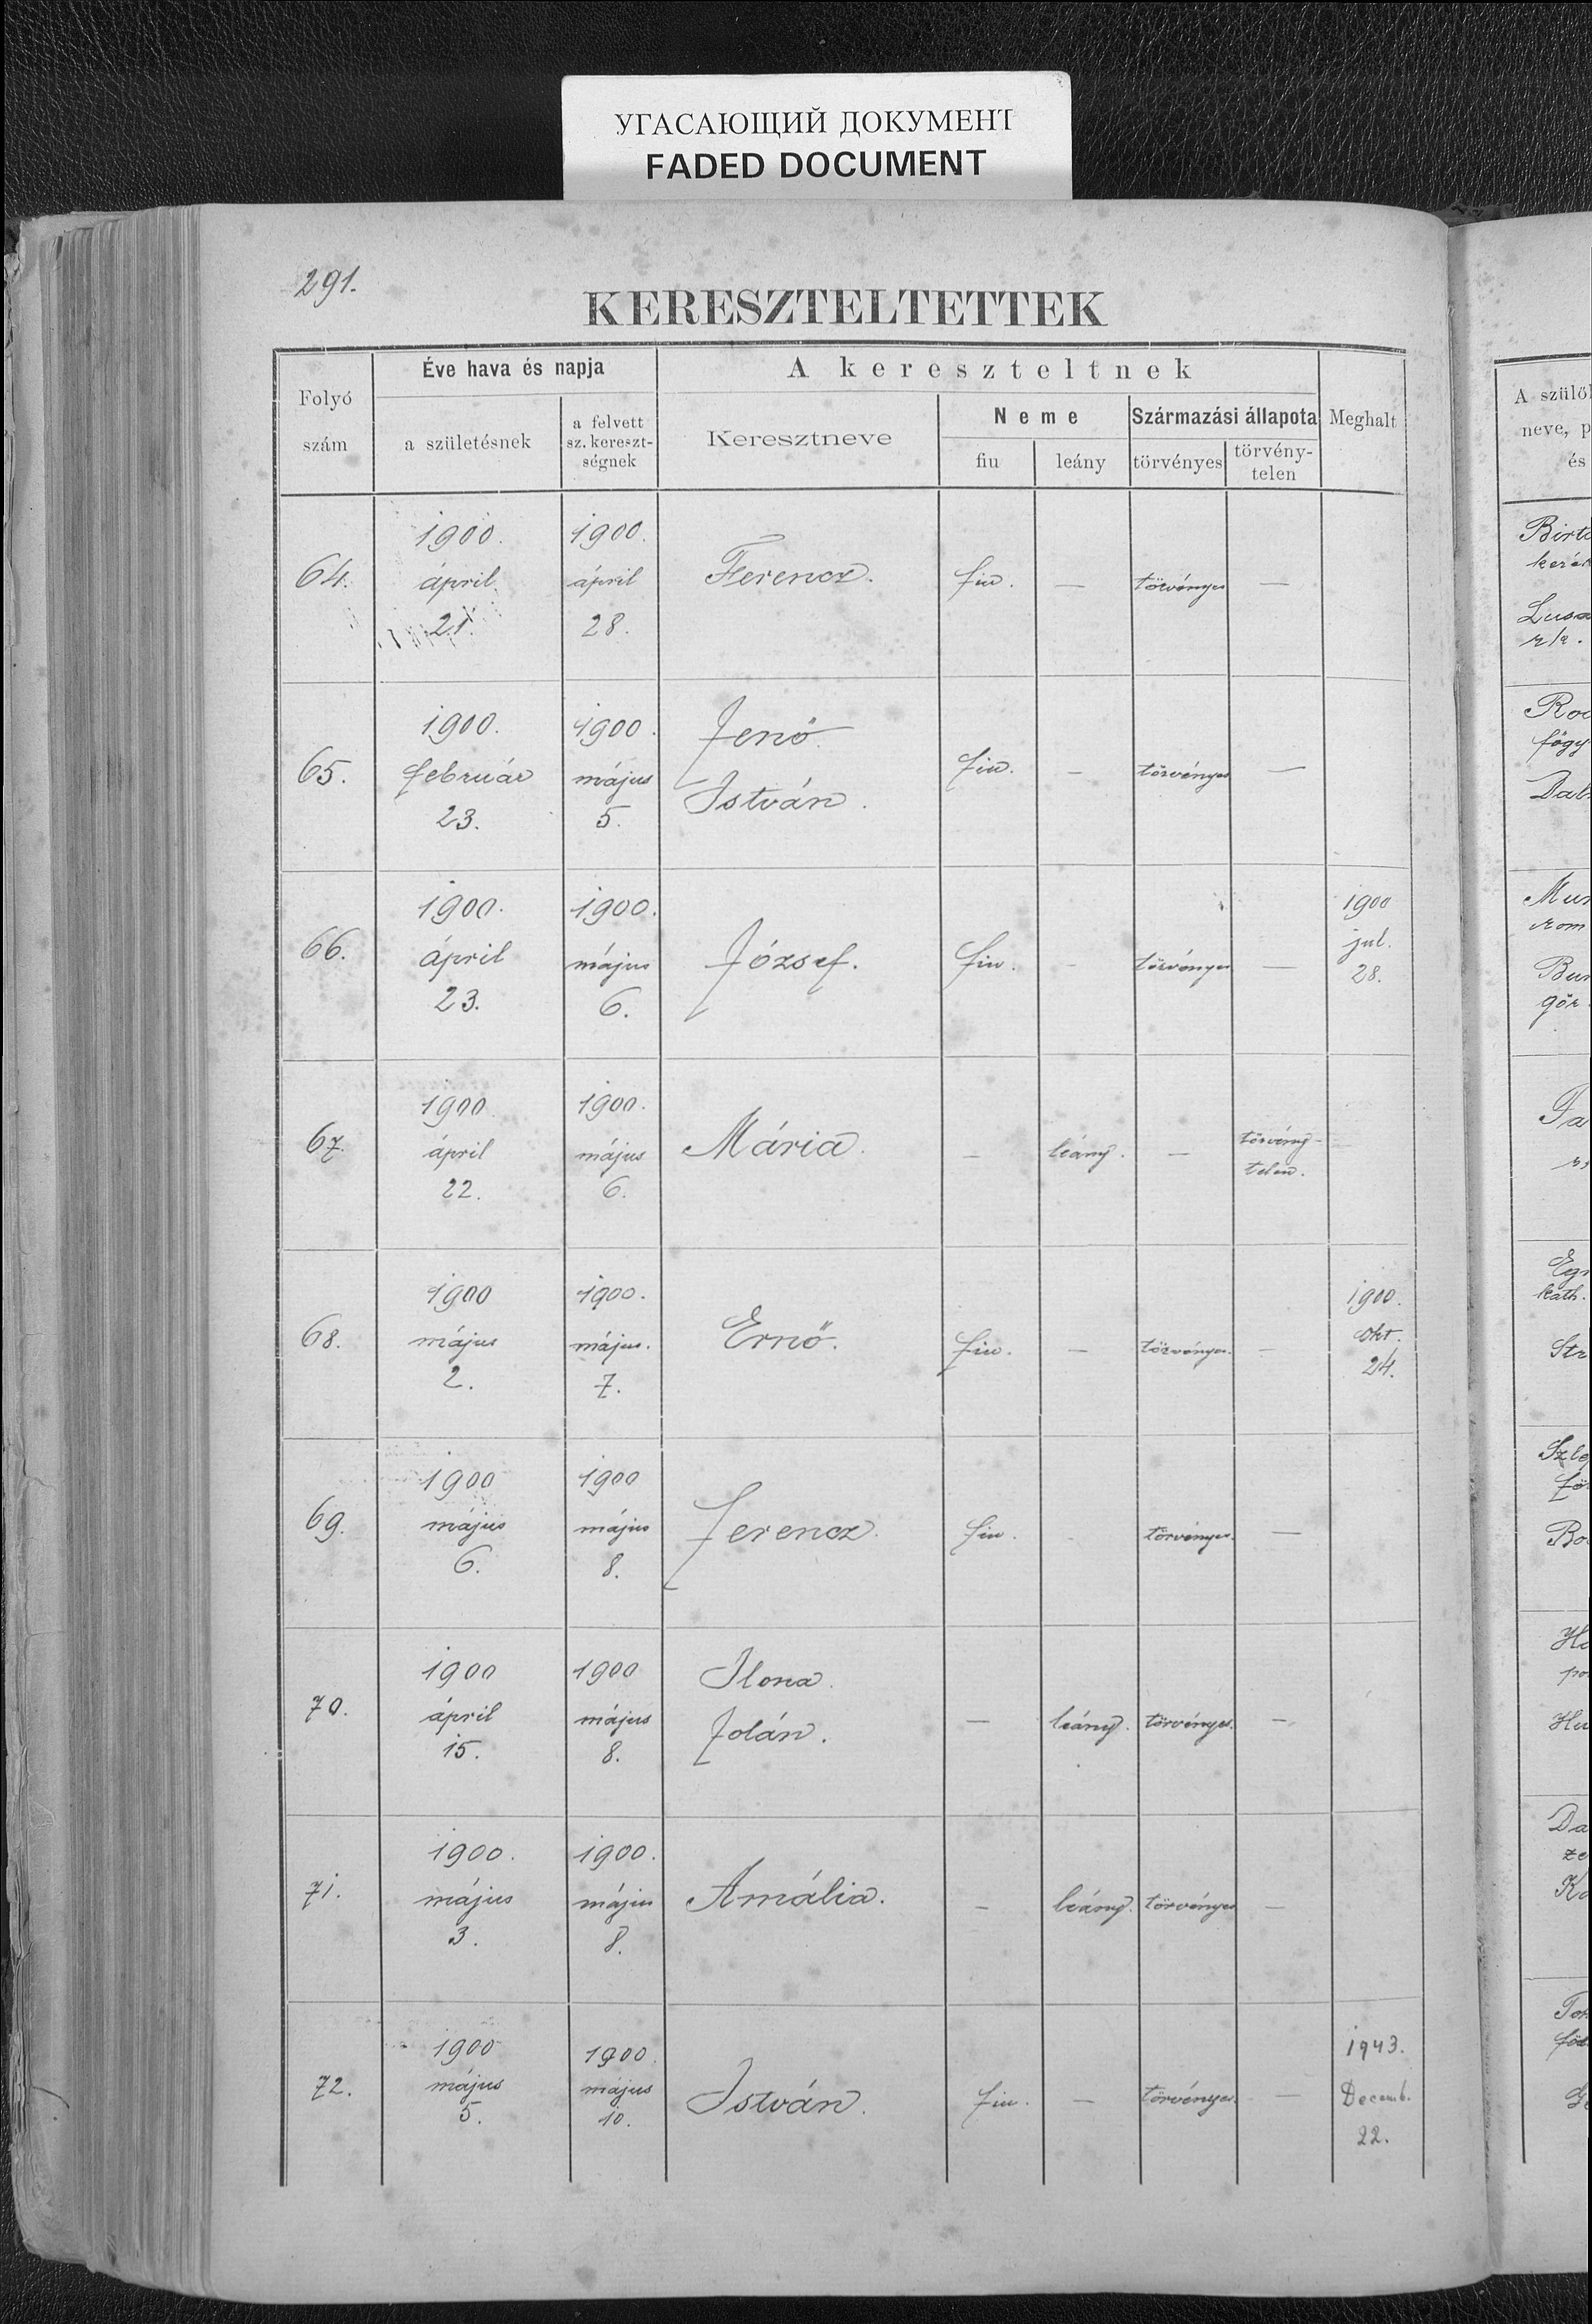 УГАСАЮЩИЙ ДОКУМЕНТ
FADED DOCUMENT
291.
KERESZTELTETTEK
Folyó szám
Éve hava és napja
a születésnek
a felvett sz. kereszt-ségnek
A kereszteltnek
Keresztneve
Neme
fiu
leány
Származási állapota
törvényes
törvény-telen
Meghalt
64. 1900. ápril 21. 1900. ápril 28. Ferencz. fiu. — törvényes —
65. 1900. február 23. 1900. május 5. Jenő István. fiu. — törvényes —
66. 1900. ápril 23. 1900. május 6. József. fiu. — törvényes — 1900 jul. 28.
67. 1900 ápril 22. 1900. május 6. Mária. — leány. — törvény-telen.
68. 1900 május 2. 1900. május. 7. Ernő. fiu. — törvényes. — 1900. Okt. 24.
69. 1900 május 6. 1900 május 8. Ferencz. fiu. - törvényes. —
70. 1900 ápril 15. 1900 május 8. Ilona Jolán. — leány. törvényes. —
71. 1900. május 3. 1900. május 8. Amália. — leány. törvényes —
72. 1900 május 5. 1900. május 10. István. fiu. — törvényes. — 1943. Decemb. 22.
A szülő
neve, p
és
Birt
Lusz
r/k.
Ro
főgy
Dab
Mun
rom
Bur
gör
Fa
Egr
kath.
Str
Szle
fö
Bo
Hu
Da
ze
Ko